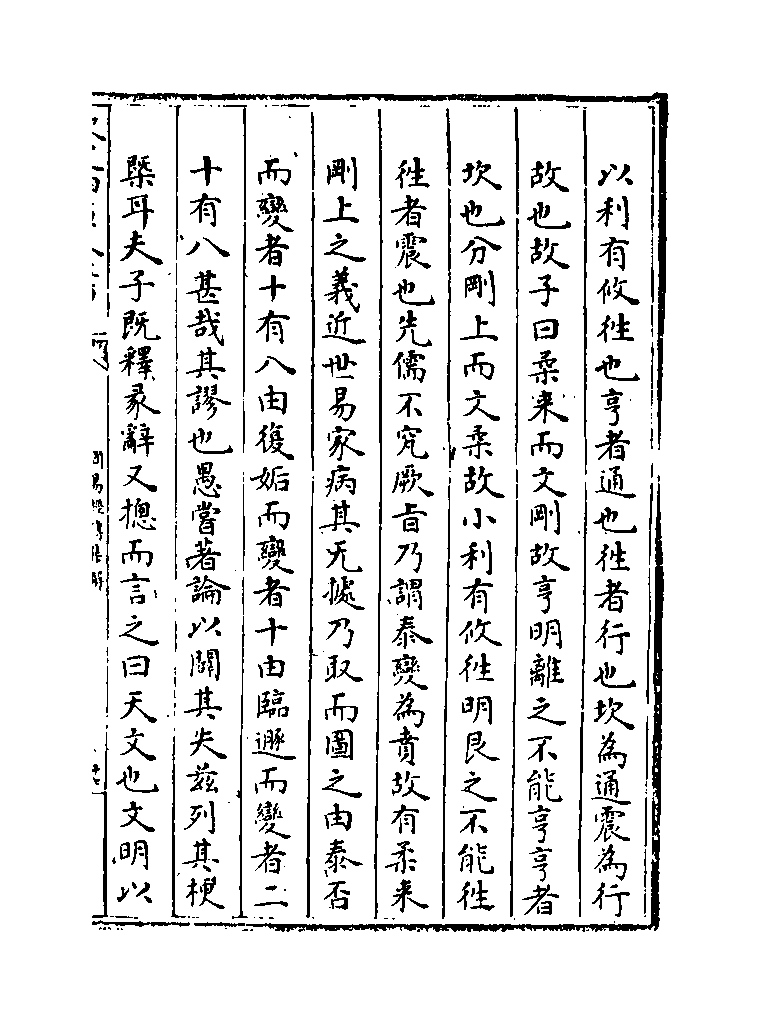 以利有攸徃也亨者通也徃者行也坎為通震為行
故也故子曰柔来而文剛故亨明離之不能亨亨者
坎也分剛上而文柔故小利有攸徃明艮之不能徃
徃者震也先儒不究厥旨乃謂泰變為賁故有柔来
剛上之義近世易家病其无據乃取而圖之由泰否
而變者十有八由復姤而變者十由臨遯而變者二
十有八甚哉其謬也愚嘗著論以闢其失兹列其梗
槩耳夫子既釋彖辭又揔而言之曰天文也文明以